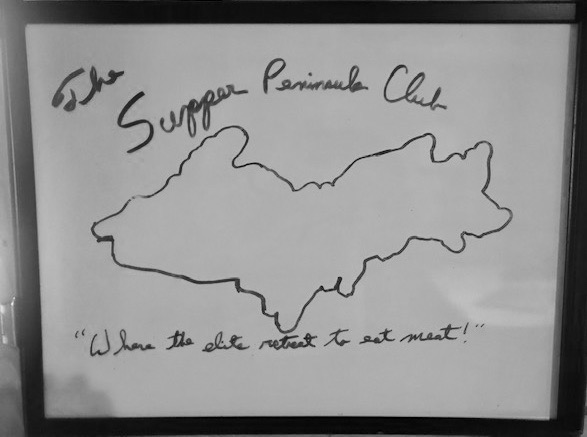 The Supper Peninsula Club
"Where the elite retreat to eat meat!"